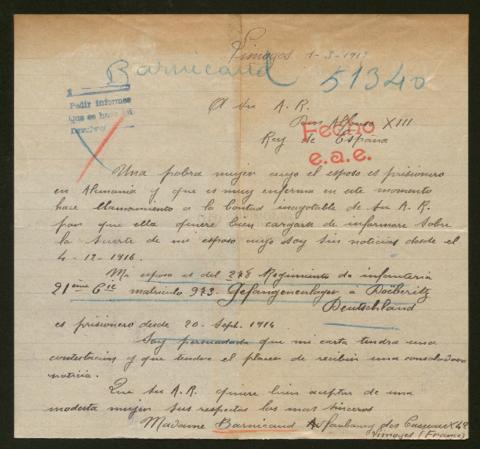 Limoges 1-3-1917
Barnicaud 51340
Pedir informes
Que se
Devolver
A Su A. R.
Don Alfonso XIII
Rey de España
Fecho
e.a.e.
Una pobra mujer cuyo el esposo es prisionero
en Alimania y que es muy enferma en este momento
hace llamamiento a la bontad inagotable de Su A. R.
par que ella quiere bien cargara de informare sobre
la suerte de mi esposo cuyo soy sin noticias desde el
4-12-1916.
Mi esposo es del 278 Regimiento de infanteria
21ème Cie matriculo 973 Gefangenenlager a Doëberitz
Deutschland
es prisionero desde 20-Sept. 1914
Soy persuadada que mi carta tendra una
contestacion y que tendre el placer de recibir una consoladora
noticia.
Que Su A. R. quiere bien aceptar de una
modesta mujer sus respectos los mas sinceros
Madame Barnicaud faubourg des Casseaux
Limoges (France)